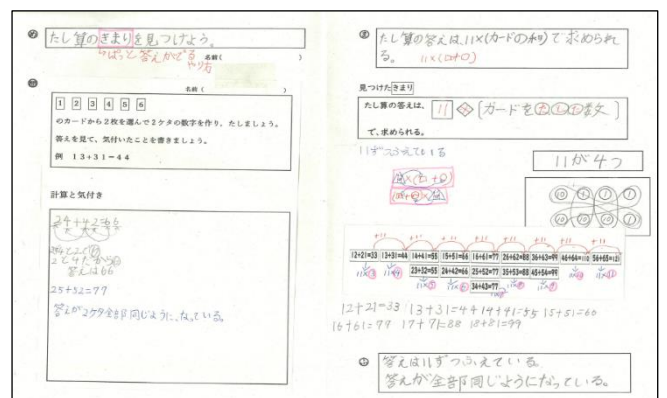 め
たし算のきまりを見つけよう。
ぱっと答えがでる
やり方
名前( )
問
名前( )
1 2 3 4 5 6
のカードから2枚を選んで2ケタの数字を作り、たしましょう。
答えを見て、気付いたことを書きましょう。
例 13+31=44
計算と気付き
24+42=66
答えは66
25+52=77
答えが2ケタ全部同じようになっている。
ま
たし算の答えは、11×(カードの和)で求められ
る。 11×(□+○)
見つけたきまり
たし算の答えは、 11 × [カードをたした数]
で、求められる。
11ずつふえている
11が4つ
10 1 1 10
10 10 1 1
+11 +11 +11 +11 +11 +11 +11 +11
12+21=33 13+31=44 14+41=55 15+51=66 16+61=77 26+62=88 36+63=99 46+64=110 56+65=121
23+32=55 24+42=66 25+52=77 35+53=88 45+54=99
34+43=77
12+21=33 13+31=44 14+41=55 15+51=60
16+61=77 17+71=88 18+81=99
答えは11ずつふえている。
答えが全部同じようになっている。